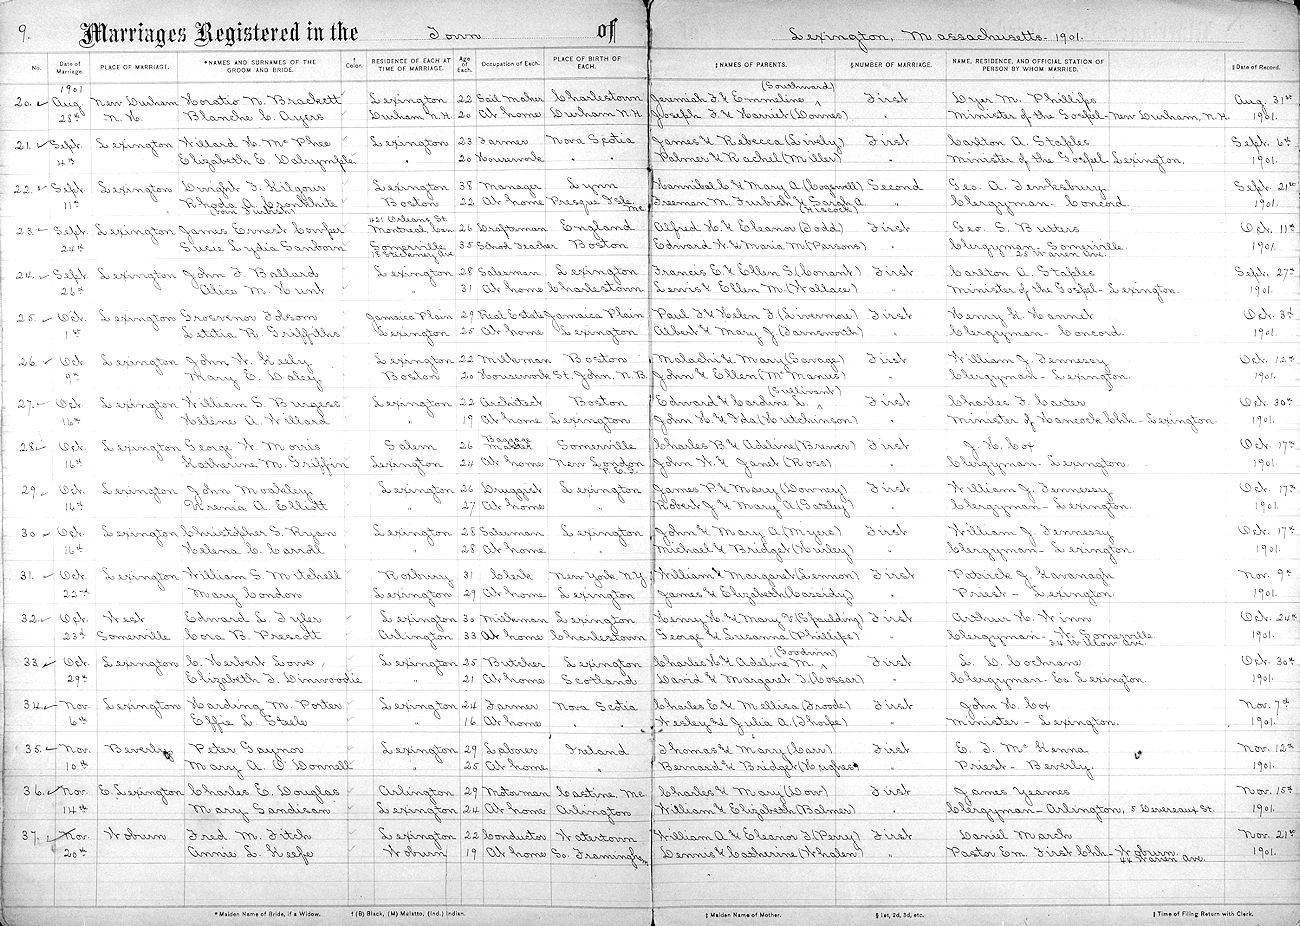 9.
Marriages Registered in the Town of Lexington, Massachusetts - 1901.
No. Date of Marriage. PLACE OF MARRIAGE. *NAMES AND SURNAMES OF THE GROOM AND BRIDE. † Color. RESIDENCE OF EACH AT TIME OF MARRIAGE. Age of Each. Occupation of Each. PLACE OF BIRTH OF EACH. ‡NAMES OF PARENTS. §NUMBER OF MARRIAGE. NAME, RESIDENCE, AND OFFICIAL STATION OF PERSON BY WHOM MARRIED. ‖Date of Record.
1901 (Southward)
20. Aug. New Durham Horatio N. Brackett Lexington 22 Sail Maker Charlestown Jeremiah F. & Emmeline ^ First Dyer M. Phillips Aug. 31st
28th N.H. Blanche C. Ayers Durham N.H. 20 At home Durham N.H. Joseph F. & Harriet (Downes) " Minister of the Gospel - New Durham, N.H. 1901.
21. Sept. Lexington Willard H. McPhee Lexington 23 Farmer Nova Scotia James & Rebecca (Lively) First Carlton A. Staples Sept. 6th
4th Elizabeth E. Dalrymple " 20 Housework " " Palmer & Rachel (Miller) " Minister of the Gospel - Lexington. 1901.
22. Sept. Lexington Dwight F. Kilgour Lexington 38 Manager Lynn Hannibal C. & Mary A. (Cogswell) Second Geo. A. Tewksbury Sept. 21st
11th Rhoda A. Cronkhite Boston 22 At home Presque Isle Me. Freeman M. Furbish & Sarah A. " Clergyman - Concord. 1901.
(born Furbish) (Hiscock)
421 Orleans St.
23. Sept. Lexington James Ernest Conper Montreal Can. 26 Draftsman England Alfred H. & Eleanor (Todd) First Geo. S. Butters Oct. 11th
24th Susie Lydia Sanborn Somerville 35 School Teacher Boston Edward W. & Maria M. (Parsons) " Clergyman - Somerville. 1901.
18 Stickney Ave. 25 Warren Ave.
24. Sept. Lexington John F. Ballard Lexington 28 Salesman Lexington Francis E. & Ellen S. (Conant) First Carlton A. Staples Sept. 27th
26th Alice M. Hunt " 31 At home Charlestown Lewis & Ellen M. (Wallace) " Minister of the Gospel - Lexington. 1901.
25. Oct. Lexington Grosvenor Folsom Jamaica Plain 29 Real Estate Jamaica Plain Paul F. & Helen F. (Livermore) First Henry H. Hannet Oct. 3d
1st Letitia B. Griffiths Lexington 25 At home Lexington Albert & Mary J. (Farnsworth) " Clergyman - Concord. 1901.
26. Oct. Lexington John W. Keely Lexington 22 Milkman Boston Malachi & Mary (Savage) First William J. Fennessy Oct. 12th
9th Mary E. Daley Boston 20 Housework St. John, N.B. John & Ellen (McManus) " Clergyman - Lexington. 1901.
(Sullivant)
27. Oct. Lexington William S. Burgess Lexington 22 Architect Boston Edward & Caroline L. ^ First Charles F. Carter Oct. 30th
16th Hélène A. Willard " 19 At home Lexington John H. & Ida (Hutchinson) " Minister of Hancock Chh - Lexington. 1901.
28. Oct. Lexington George W. Morris Salem 26 Baggage Master Somerville Charles B. & Adeline (Brewer) First J. H. Cox Oct. 17th
16th Katherine M. Griffin Lexington 24 At home New London P.E.I. John W. & Janet (Ross) " Clergyman - Lexington. 1901.
29. Oct. Lexington John Moakley Lexington 26 Druggist Lexington James P. & Mary (Downey) First William J. Fennessy Oct. 17th
16th Urenia A. Elliott " 27 At home " Robert J. & Mary A. (Gateley) " Clergyman - Lexington. 1901.
30. Oct. Lexington Christopher S. Ryan Lexington 28 Salesman Lexington John & Mary A. (Myers) First William J. Fennessy Oct. 17th
16th Helena C. Carroll " 28 At home " Michael & Bridget (Hurley) " Clergyman - Lexington. 1901.
31. Oct. Lexington William S. Mitchell Roxbury 31 Clerk New York N.Y. William & Margaret (Lennon) First Patrick J. Kavanagh Nov. 9th
22nd Mary Condon Lexington 29 At home Lexington James & Elizabeth (Cassidy) " Priest - Lexington. 1901.
32. Oct. West Edward L. Tyler Lexington 30 Milkman Lexington Henry H. & Mary V. (Spaulding) First Arthur H. Winn Oct. 24th
23d Somerville Cora B. Prescott Arlington 33 At home Charlestown George & Susanna (Phillips) " Clergyman - W. Somerville. 1901.
(Goodwin) 34 Willow Ave.
33. Oct. Lexington C. Herbert Lowe Lexington 25 Butcher Lexington Charles H. & Adeline M. ^ First L. D. Cochrane Oct. 30th
29th Elizabeth F. Dinwoodie " 21 At home Scotland David & Margaret T. (Cossar) " Clergyman - Ea. Lexington. 1901.
34. Nov. Lexington Harding M. Porter Lexington 24 Farmer Nova Scotia Charles E. & Mellisa (Froode) First John H. Cox Nov. 7th
6th Effie L. Steele " 16 At home " " Wesley & Julia A. (Thorpe) " Minister - Lexington. 1901.
35. Nov. Beverly Peter Gaynor Lexington 29 Laborer Ireland Thomas & Mary (Carr) First E. F. McKenna Nov. 12th
10th Mary A. O'Donnell " 25 At home " Bernard & Bridget (Hughes) " Priest - Beverly. 1901.
36. Nov. E. Lexington Charles E. Douglas Arlington 29 Motorman Castine, Me. Charles & Mary (Dow) First James Yeames Nov. 15th
14th Mary Sandison Lexington 24 At home Arlington William & Elizabeth (Balmer) " Clergyman - Arlington, 5 Devereaux St. 1901.
37. Nov. Woburn Fred M. Fitch Lexington 22 Conductor Watertown William A. & Eleanor F. (Perry) First Daniel March Nov. 21st
20th Annie L. Keefe Woburn 19 At home So. Framingham Dennis & Catherine (Whalen) " Pastor Em. First Chh - Woburn. 1901.
44 Warren Ave.
*Maiden Name of Bride, if a Widow. †(B) Black, (M) Mulatto, (Ind.) Indian. ‡Maiden Name of Mother. §1st, 2d, 3d, etc. ‖Time of Filing Return with Clerk.